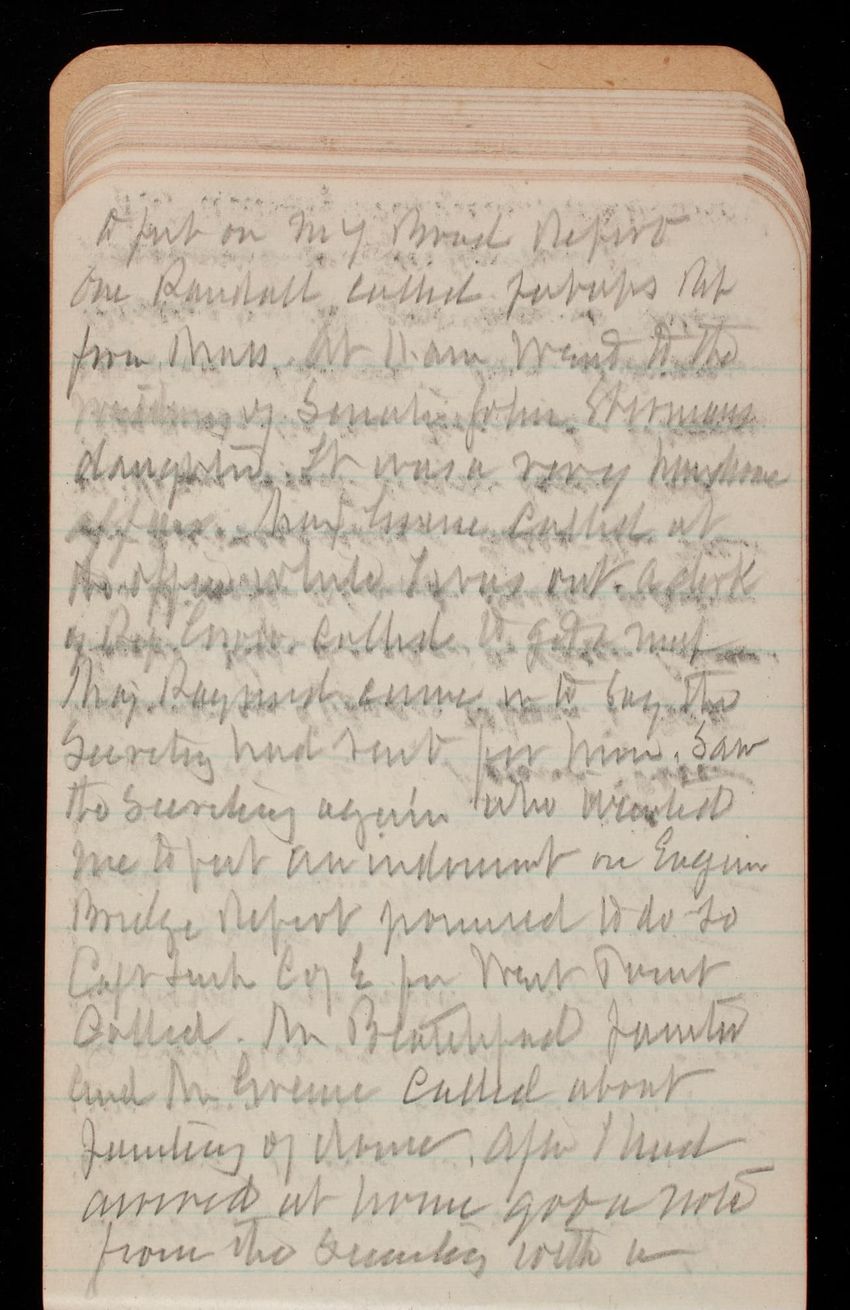 to put on my Broad Report
One Randall called perhaps Rep
from Mass. At 12 am Went to the
wedding of Senator John Shermans
daughter. It was a very handsome
affair. Maj Greene called at
the office while I was out. A clerk
of Rep called to get a
Maj Raymond came in to say the
Secretary had sent for him. Saw
the Secretary again who wanted
me to put an indorsment on Engin
Bridge Report promised to do so
Capt Lusk C of E for West Point
Called. Mr Blatchford Painter
and Mr Greene Called about
Painting of dome. After I had
arrived at home got a note
from the Secretary with a